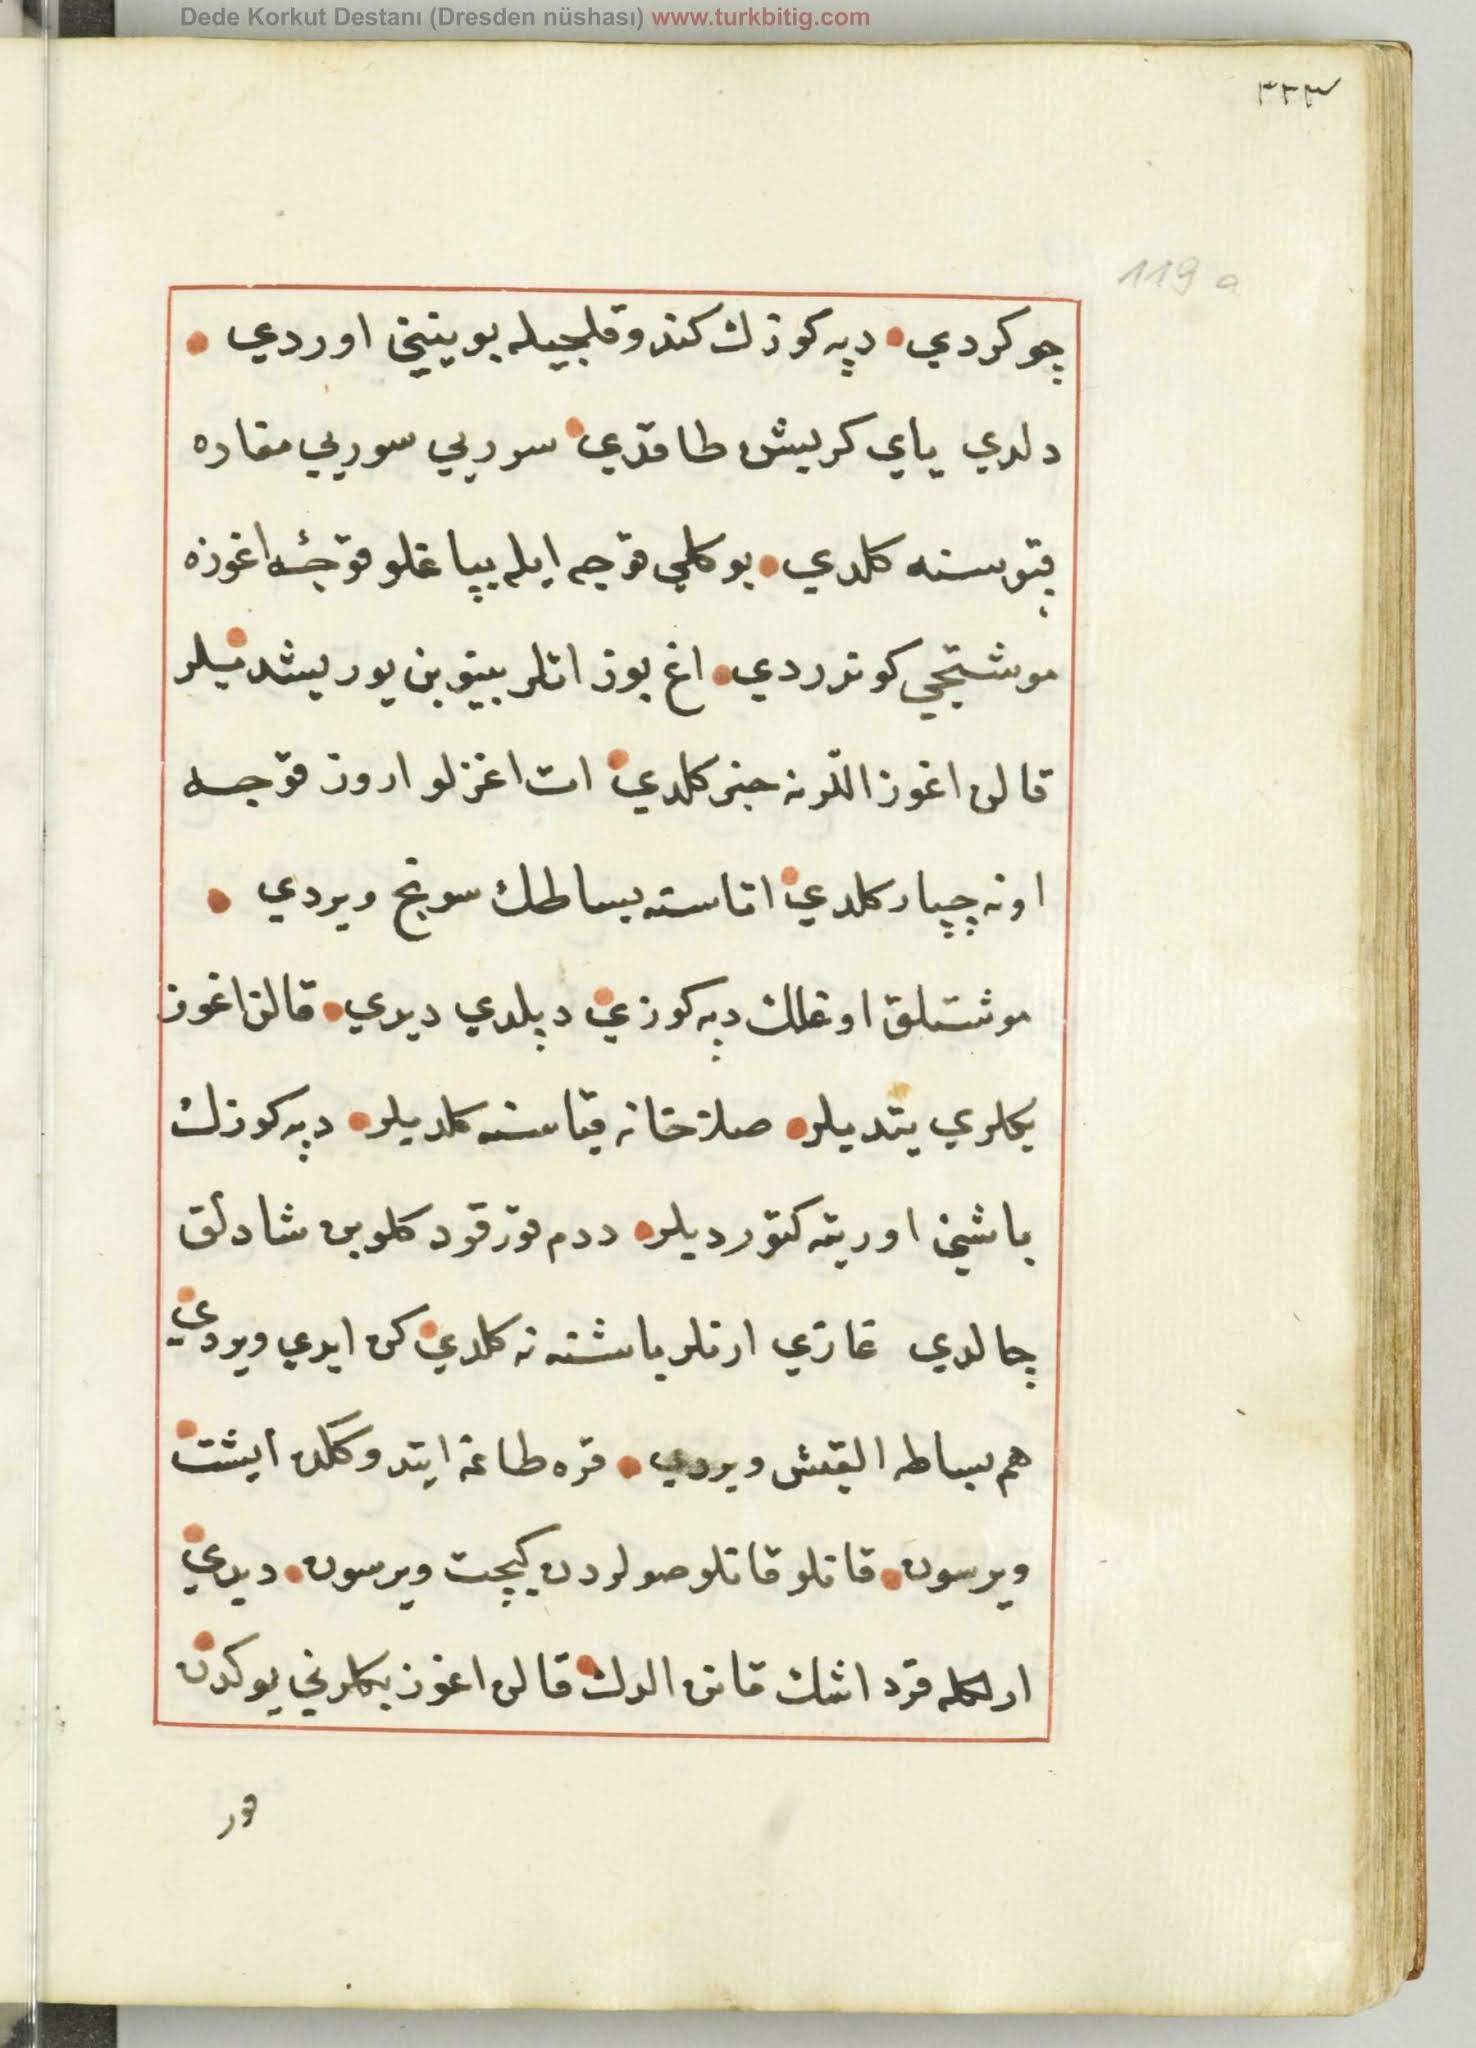 Dede Korkut Destanı (Dresden nüshası) www.turkbitig.com
٢٣٣
119 a
چوكردي • دپه كوزك كندو قلجيله بوينين اوردي •
دلدي ياي كريش طاقدي • سوريي سوريي مغاره
قپوسنه كلدي • بوكلي قوجه ايله يپاغلو قوجه اغوزه
موشتجي كوندردي • اغ بوز اتلر بينوبن يوريشديلر
قالن اغوز اللرنه خبر كلدي • ات اغزلو اروز قوجه
اونه چپار كلدي • اتاسنه بساطك سونج ويردي •
موشتلق اوغلك دپه كوزي دپلدي ديدي • قالن اغوز
بكلري يتديلر • صلاخانه قياسنه كلديلر • دپه كوزك
باشني اورتيه كتورديلر • ددم قورقود كلوبن شادلق
چالدي غازي ارنلر باشنه نه كلدي كن ايدي ويردي
هم بساطه القش ويردي • قره طاغه ايتدوكده ايشت
ويرسون • قانلو قانلو صولردن كيچت ويرسون • ديدي
ارلكله قرداشك قانن الدك • قالن اغوز بكلرني يوكدن
قور